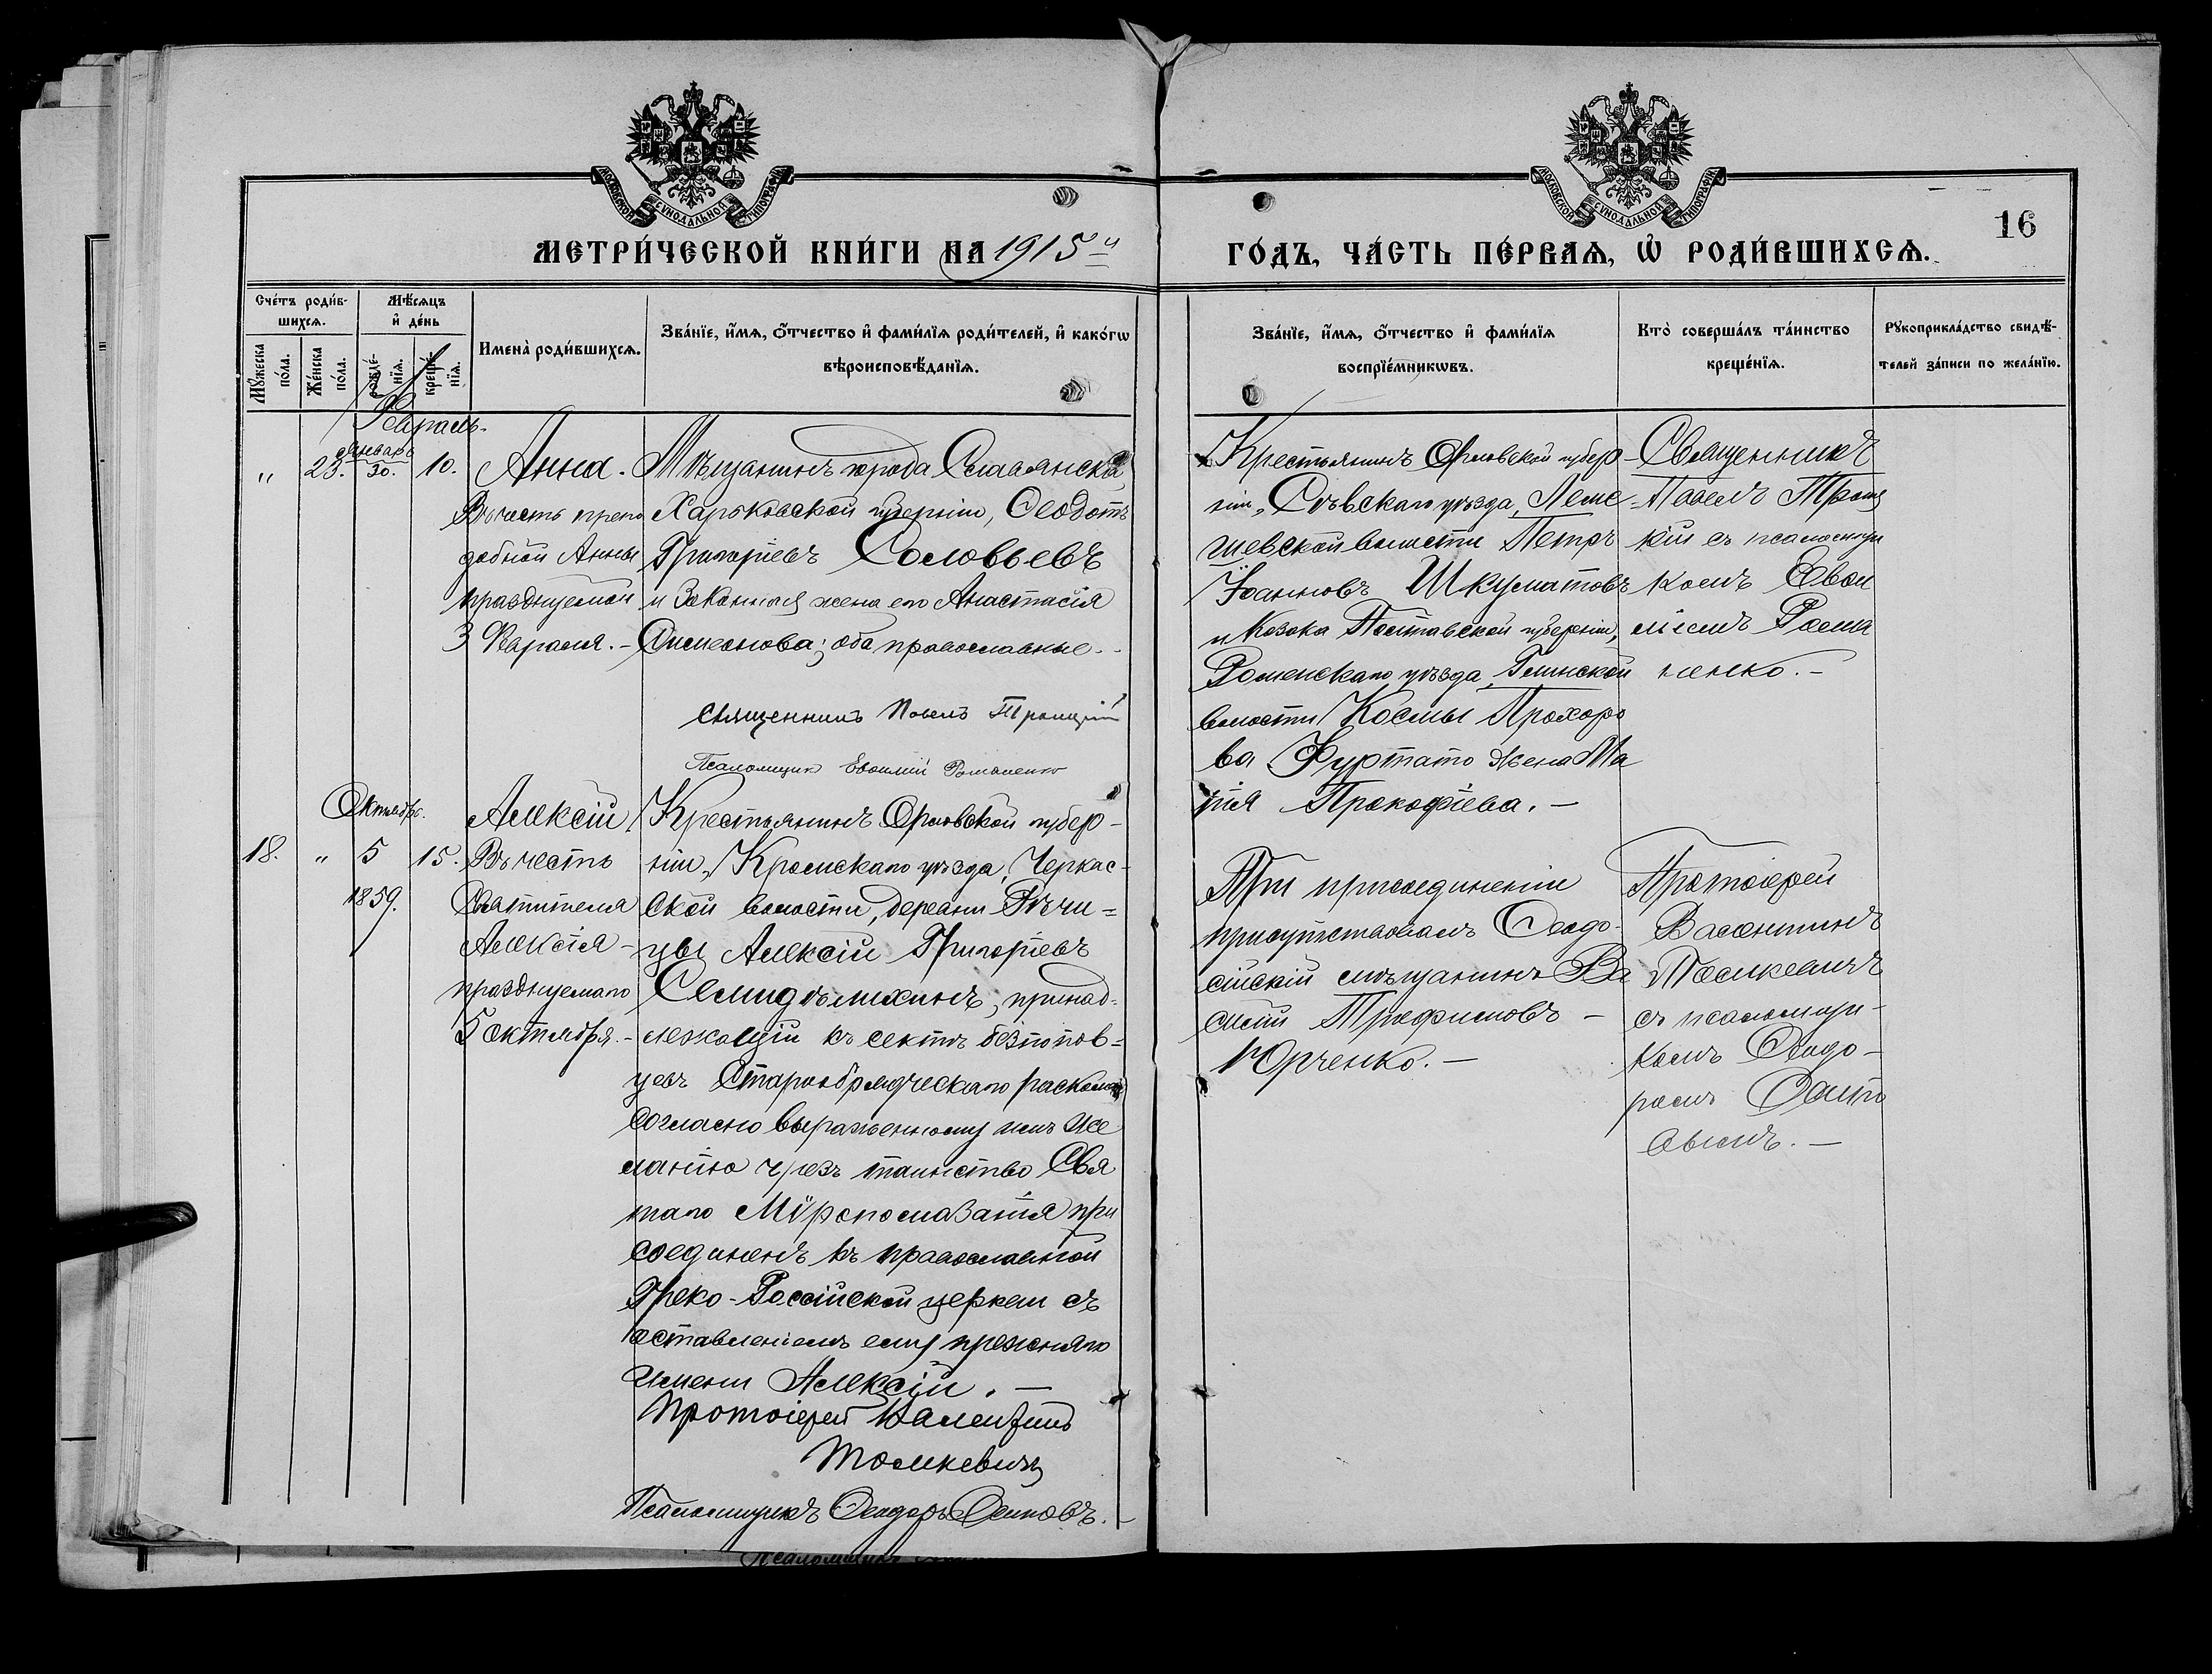 МОСКОВСКОЙ СѴНОДАЛЬНОЙ ТИПОГРАФІИ
МОСКОВСКОЙ СѴНОДАЛЬНОЙ ТИПОГРАФІИ
16
МЕТРИ́ЧЕСКОЙ КНИ́ГИ НА 1915й
ГО́ДЪ, ЧА́СТЬ ПЕ́РВАѦ, Ѽ РОДИ́ВШИХСѦ.
Сче́тъ роди́в-
шихсѧ.
Мѣ́сѧцъ
и҆ де́нь
Мꙋ́жеска
по́ла.
Же́нска
по́ла.
рожде́-
нїѧ.
креще́-
нїѧ.
Имена̀ роди́вшихсѧ.
Зва́нїе, и҆́мѧ, ѻ҆́тчество и҆ фами́лїѧ роди́телей, и҆ како́гѡ
вѣроисповѣ́данїѧ.
Зва́нїе, и҆́мѧ, ѻ҆́тчество и҆ фами́лїѧ
воспрїе́мникѡвъ.
Кто̀ соверша́лъ та́инство
креще́нїѧ.
Рꙋкоприкла́дство свидѣ́-
телей за́писи по жела́нїю.
Февраль.
„ 23. Январь 30. 10.
Анна.
Въ честь препо
добной Анны
празднуемой
3 Февраля.-
Мѣщанинъ города Славянска,
Харьковской губерніи, Ѳеодотъ
Григоріевъ Соловьевъ
и законная жена его Анастасія
Симеонова; оба православные.-
Священникъ Павелъ Троицкій
Псаломщикъ Евѳимій Романенко
Крестьянинъ Орловской губер-
ніи, Сѣвскаго уѣзда, Леме-
шевской волости Петръ
Іоанновъ Шкуматовъ
и Козака Полтавской губерніи,
Роменскаго уѣзда, Глинской
волости Космы Прохоро
ва Фуртато жена Ма
рія Прокофіева.-
Священникъ
Павелъ Троиц
кій съ псаломщи
комъ Евѳи
міемъ Рома
ненко.-
Октябрь.
18. „ 5 15.
1859.
Алексій
Въ честь
Святителя
Алексія -
празднуемаго
5 октября.-
Крестьянинъ Орловской губер-
ніи, Кромскаго уѣзда, Черкас-
ской волости, деревни Рѣчи=
цы Алексій Григоріевъ
Семидѣлихинъ, принад-
лежащій къ сектѣ безпопов=
цевъ Старообрядческаго раскола
согласно выраженному имъ же
ланію чрезъ таинство Свя
таго Мѵропомазанія при
соединенъ къ православной
Греко-Россійской церкви съ
оставленіемъ ему прежняго
имени Алексій.-
Протоіерей Валентинъ
Томкевичъ
Псаломщикъ Ѳеодоръ Осиповъ.-
При присоединеніи
присутствовалъ Ѳеодо-
сійскій мѣщанинъ Ва
силій Трофимовъ -
Юрченко.-
Протоіерей
Валентинъ
Томкевичъ
съ псаломщи-
комъ Ѳеодо-
ромъ Осипо
вымъ.-
Псаломщикъ